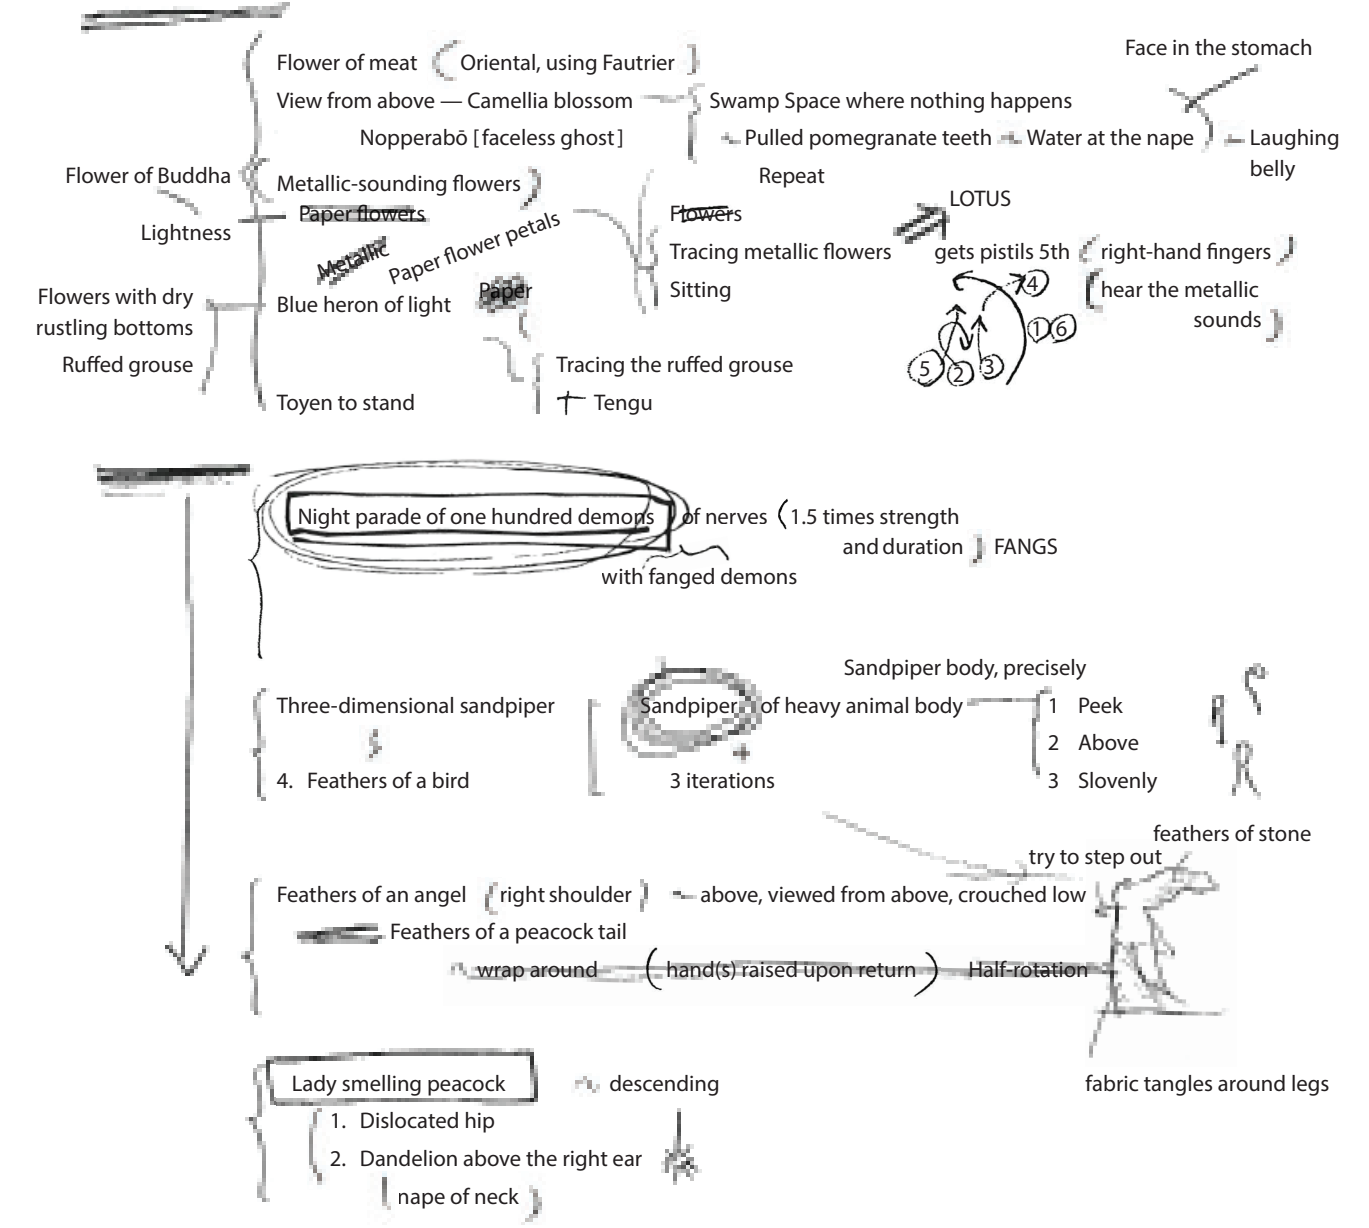 Face in the stomach
Flower of meat ( Oriental, using Fautrier )
View from above — Camellia blossom
Swamp Space where nothing happens
Nopperabō [faceless ghost]
Pulled pomegranate teeth
Water at the nape
Laughing
belly
Repeat
Flower of Buddha
Metallic-sounding flowers )
Lightness
Paper flowers
Metallic
Paper flower petals
Flowers
LOTUS
Tracing metallic flowers
gets pistils 5th ( right-hand fingers )
Sitting
( hear the metallic
sounds )
4
1 6
5 2 3
Flowers with dry
rustling bottoms
Blue heron of light
Paper
Ruffed grouse
Tracing the ruffed grouse
Toyen to stand
Tengu
Night parade of one hundred demons of nerves ( 1.5 times strength
and duration ) FANGS
with fanged demons
Sandpiper body, precisely
Three-dimensional sandpiper
Sandpiper of heavy animal body
1 Peek
2 Above
+
4. Feathers of a bird
3 iterations
3 Slovenly
R
feathers of stone
try to step out
Feathers of an angel ( right shoulder )
above, viewed from above, crouched low
Feathers of a peacock tail
wrap around ( hand(s) raised upon return ) Half-rotation
fabric tangles around legs
Lady smelling peacock
descending
1. Dislocated hip
2. Dandelion above the right ear
( nape of neck )